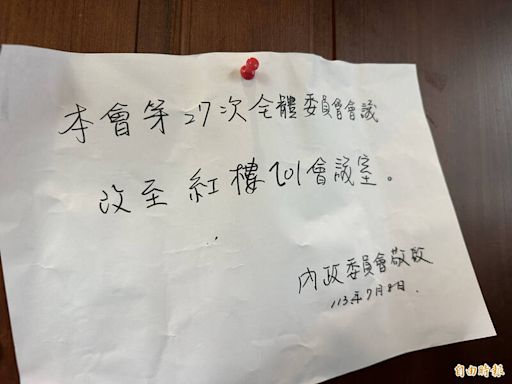 本會第27次全體委員會會議
改至紅樓201會議室。
內政委員會敬啟
113年7月8日.
自由時報